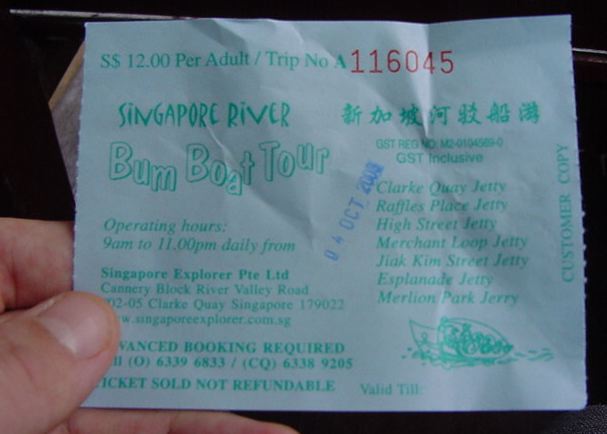 S$ 12.00 Per Adult / Trip No A 116045
SINGAPORE RIVER
新加坡河驳船游
Bum Boat Tour
GST REG NO: M2-0104569-0
GST Inclusive
04 OCT 2003
Clarke Quay Jetty
Raffles Place Jetty
High Street Jetty
Merchant Loop Jetty
Jiak Kim Street Jetty
Esplanade Jetty
Merlion Park Jerry
CUSTOMER COPY
Operating hours:
9am to 11.00pm daily from
Singapore Explorer Pte Ltd
Cannery Block River Valley Road
02-05 Clarke Quay Singapore 179022
www.singaporeexplorer.com.sg
VANCED BOOKING REQUIRED
ll (O) 6339 6833 / (CQ) 6338 9205
ICKET SOLD NOT REFUNDABLE
Valid Till: